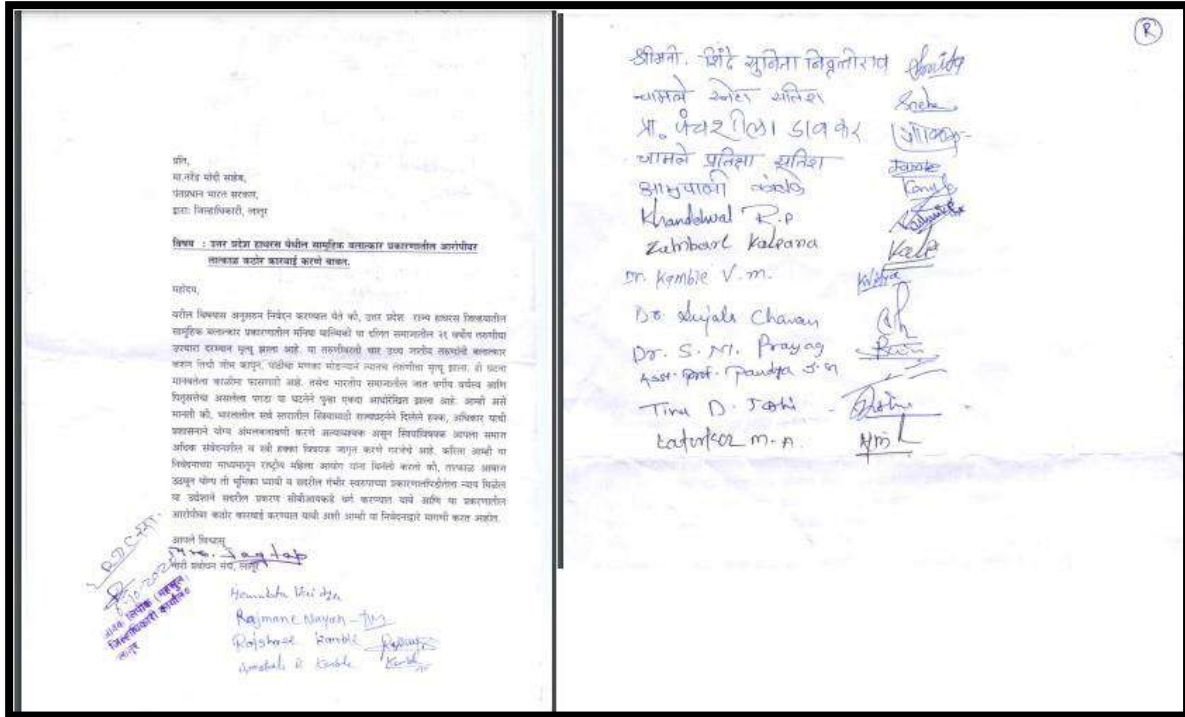 प्रति,
मा.नरेंद्र मोदी साहेब,
पंतप्रधान भारत सरकार,
द्वारा: जिल्हाधिकारी, लातूर
विषय : उत्तर प्रदेश हाथरस येथील सामूहिक बलात्कार प्रकारणातील आरोपीवर
तात्काळ कठोर कारवाई करणे बाबत.
महोदय,
वरील विषयास अनुसरुन निवेदन करण्यात येते की, उत्तर प्रदेश राज्य हाथरस जिल्ह्यातील
सामूहिक बलात्कार प्रकारणातील मनिषा वाल्मिकी या दलित समाजातील २१ वर्षीय तरुणीचा
उपचारा दरम्यान मृत्यू झाला आहे. या तरुणीवरती चार उच्च जातीय तरुणांनी बलात्कार
करुन तिची जीभ कापून, पाठीचा मणका मोडल्याने त्यातच तरुणीचा मृत्यू झाला. ही घटना
मानवतेला काळीमा फासणारी आहे. तसेच भारतीय समाजातील जात वर्गीय वर्चस्व आणि
पितृसत्तेचा असलेला पगडा या घटनेने पुन्हा एकदा आधोरेखित झाला आहे. आम्ही असे
मानतो की, भारतातील सर्व स्तरातील स्त्रियांसाठी राज्यघटनेने दिलेले हक्क, अधिकार याची
प्रशासनाने योग्य अंमलबजावणी करणे अत्यावश्यक असून स्त्रियांविषयक आपला समाज
अधिक संवेदनशील व स्त्री हक्का विषयक जागृत करणे गरजेचे आहे. करिता आम्ही या
निवेदनाच्या माध्यमातून राष्ट्रीय महिला आयोग यांना विनंती करतो की, तात्काळ आवाज
उठवून योग्य ती भूमिका घ्यावी व सदरील गंभीर स्वरुपाच्या प्रकारणातपिडीतेला न्याय मिळेल
या उद्देशाने सदरील प्रकरण सीबीआयकडे वर्ग करण्यात यावे आणि या प्रकारणातील
आरोपीला कठोर कारवाई करण्यात यावी अशी आम्ही या निवेदनाद्वारे मागणी करत आहोत.
आपले विश्वासू
Mrs. Jagtap
नारी प्रबोधन मंच, लातूर
जिल्हाधिकारी कार्यालय
लातूर
Hemlata Vaidya
Rajmane Nayan
Rajshree Kamble
R Kamble
R
श्रीमती. शिंदे सुनिता निवृत्तीराव
चामले स्नेहा सतिश Sneha
प्रा. पंचशीला डावकर
चामले प्रतिक्षा सतिश
आम्रपाली कांबळे Kamble
Khandelwal R.P
Zambare Kalpana Kalp
Dr. Kamble V.m.
Dr. Sujala Chavan
Dr. S. M. Prayag
Asst. Prof. Pandya J.n
Tinu D. Joshi
Laturkar M.A.